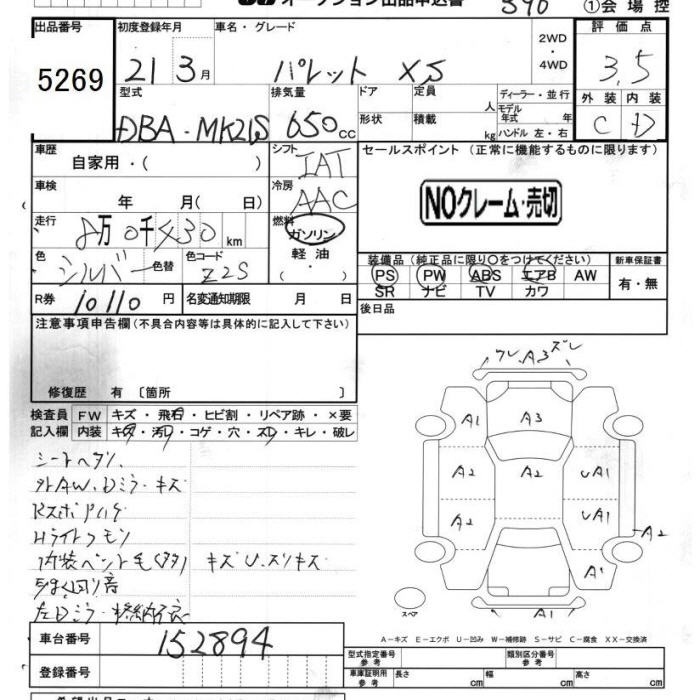 オークション出品申込書 390 ①会場控
出品番号 初度登録年月 車名・グレード 2WD・4WD 評価点
5269 21 3月 パレット XS 3,5
型式 排気量 ドア 定員 人 ディーラー・並行 外装 内装
DBA-MK21S 650cc 形状 積載 kg モデル年式 年 ハンドル 左・右 C D
車歴 自家用・( ) シフト IAT セールスポイント (正常に機能するものに限ります)
車検 年 月( 日) 冷房 AAC NOクレーム・売切
走行 8万0千430km 燃料 ガソリン 軽油
色 シルバー 色替 色コード Z2S 装備品(純正品に限り〇をつけてください) 新車保証書
PS PW ABS エアB AW 有・無
SR ナビ TV カワ
R券 10110円 名変通知期限 月 日 後日品
注意事項申告欄(不具合内容等は具体的に記入して下さい)
修復歴 有〔箇所 〕
検査員 FW キズ・飛石・ヒビ割・リペア跡・×要
記入欄 内装 キズ・汚レ・コゲ・穴・スレ・キレ・破レ
シートヘタリ
外AW、Dミラーキズ
Hライトクモン
キズU.スリキズ
車台番号 152894
登録番号
A3 ズレ
A1 A3
A2 A2 UA1
A2 UA1 A2
A1
A1
スペア
A-キズ E-エクボ U-凹み W-補修跡 S-サビ C-腐食 XX-交換済
型式指定番号 参考 類別区分番号 参考
車庫証明用 参考 長さ cm 幅 cm 高さ cm